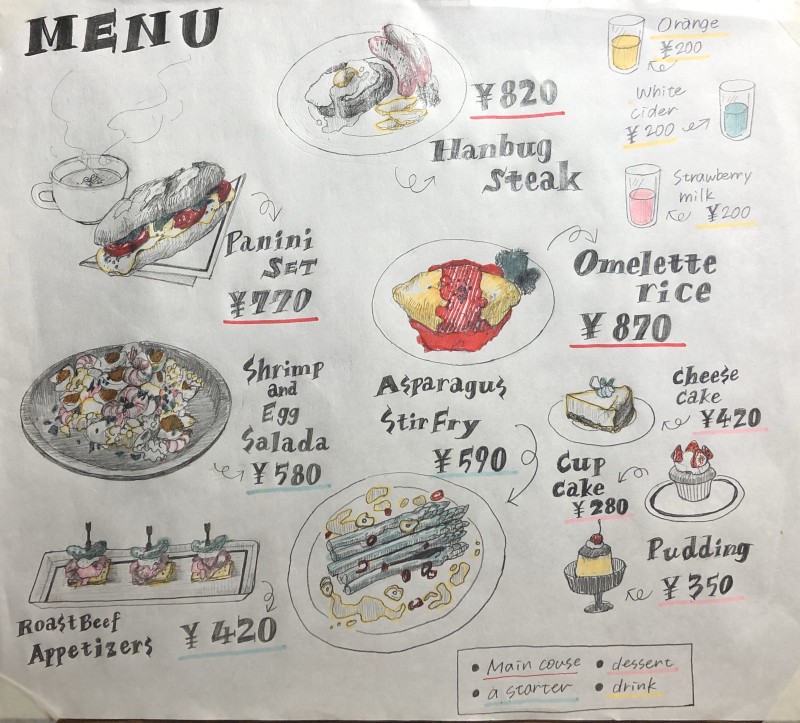 MENU
Orange
¥200
White
cider
¥200
Strawberry
milk
¥200
¥820
Hanbug
Steak
Panini
SET
¥770
Omelette
rice
¥870
Shrimp
and
Egg
Salada
¥580
Asparagus
Stir Fry
¥590
cheese
cake
¥420
Cup
cake
¥280
Pudding
¥350
Roast Beef
Appetizers
¥420
• Main couse • dessert
• a starter • drink